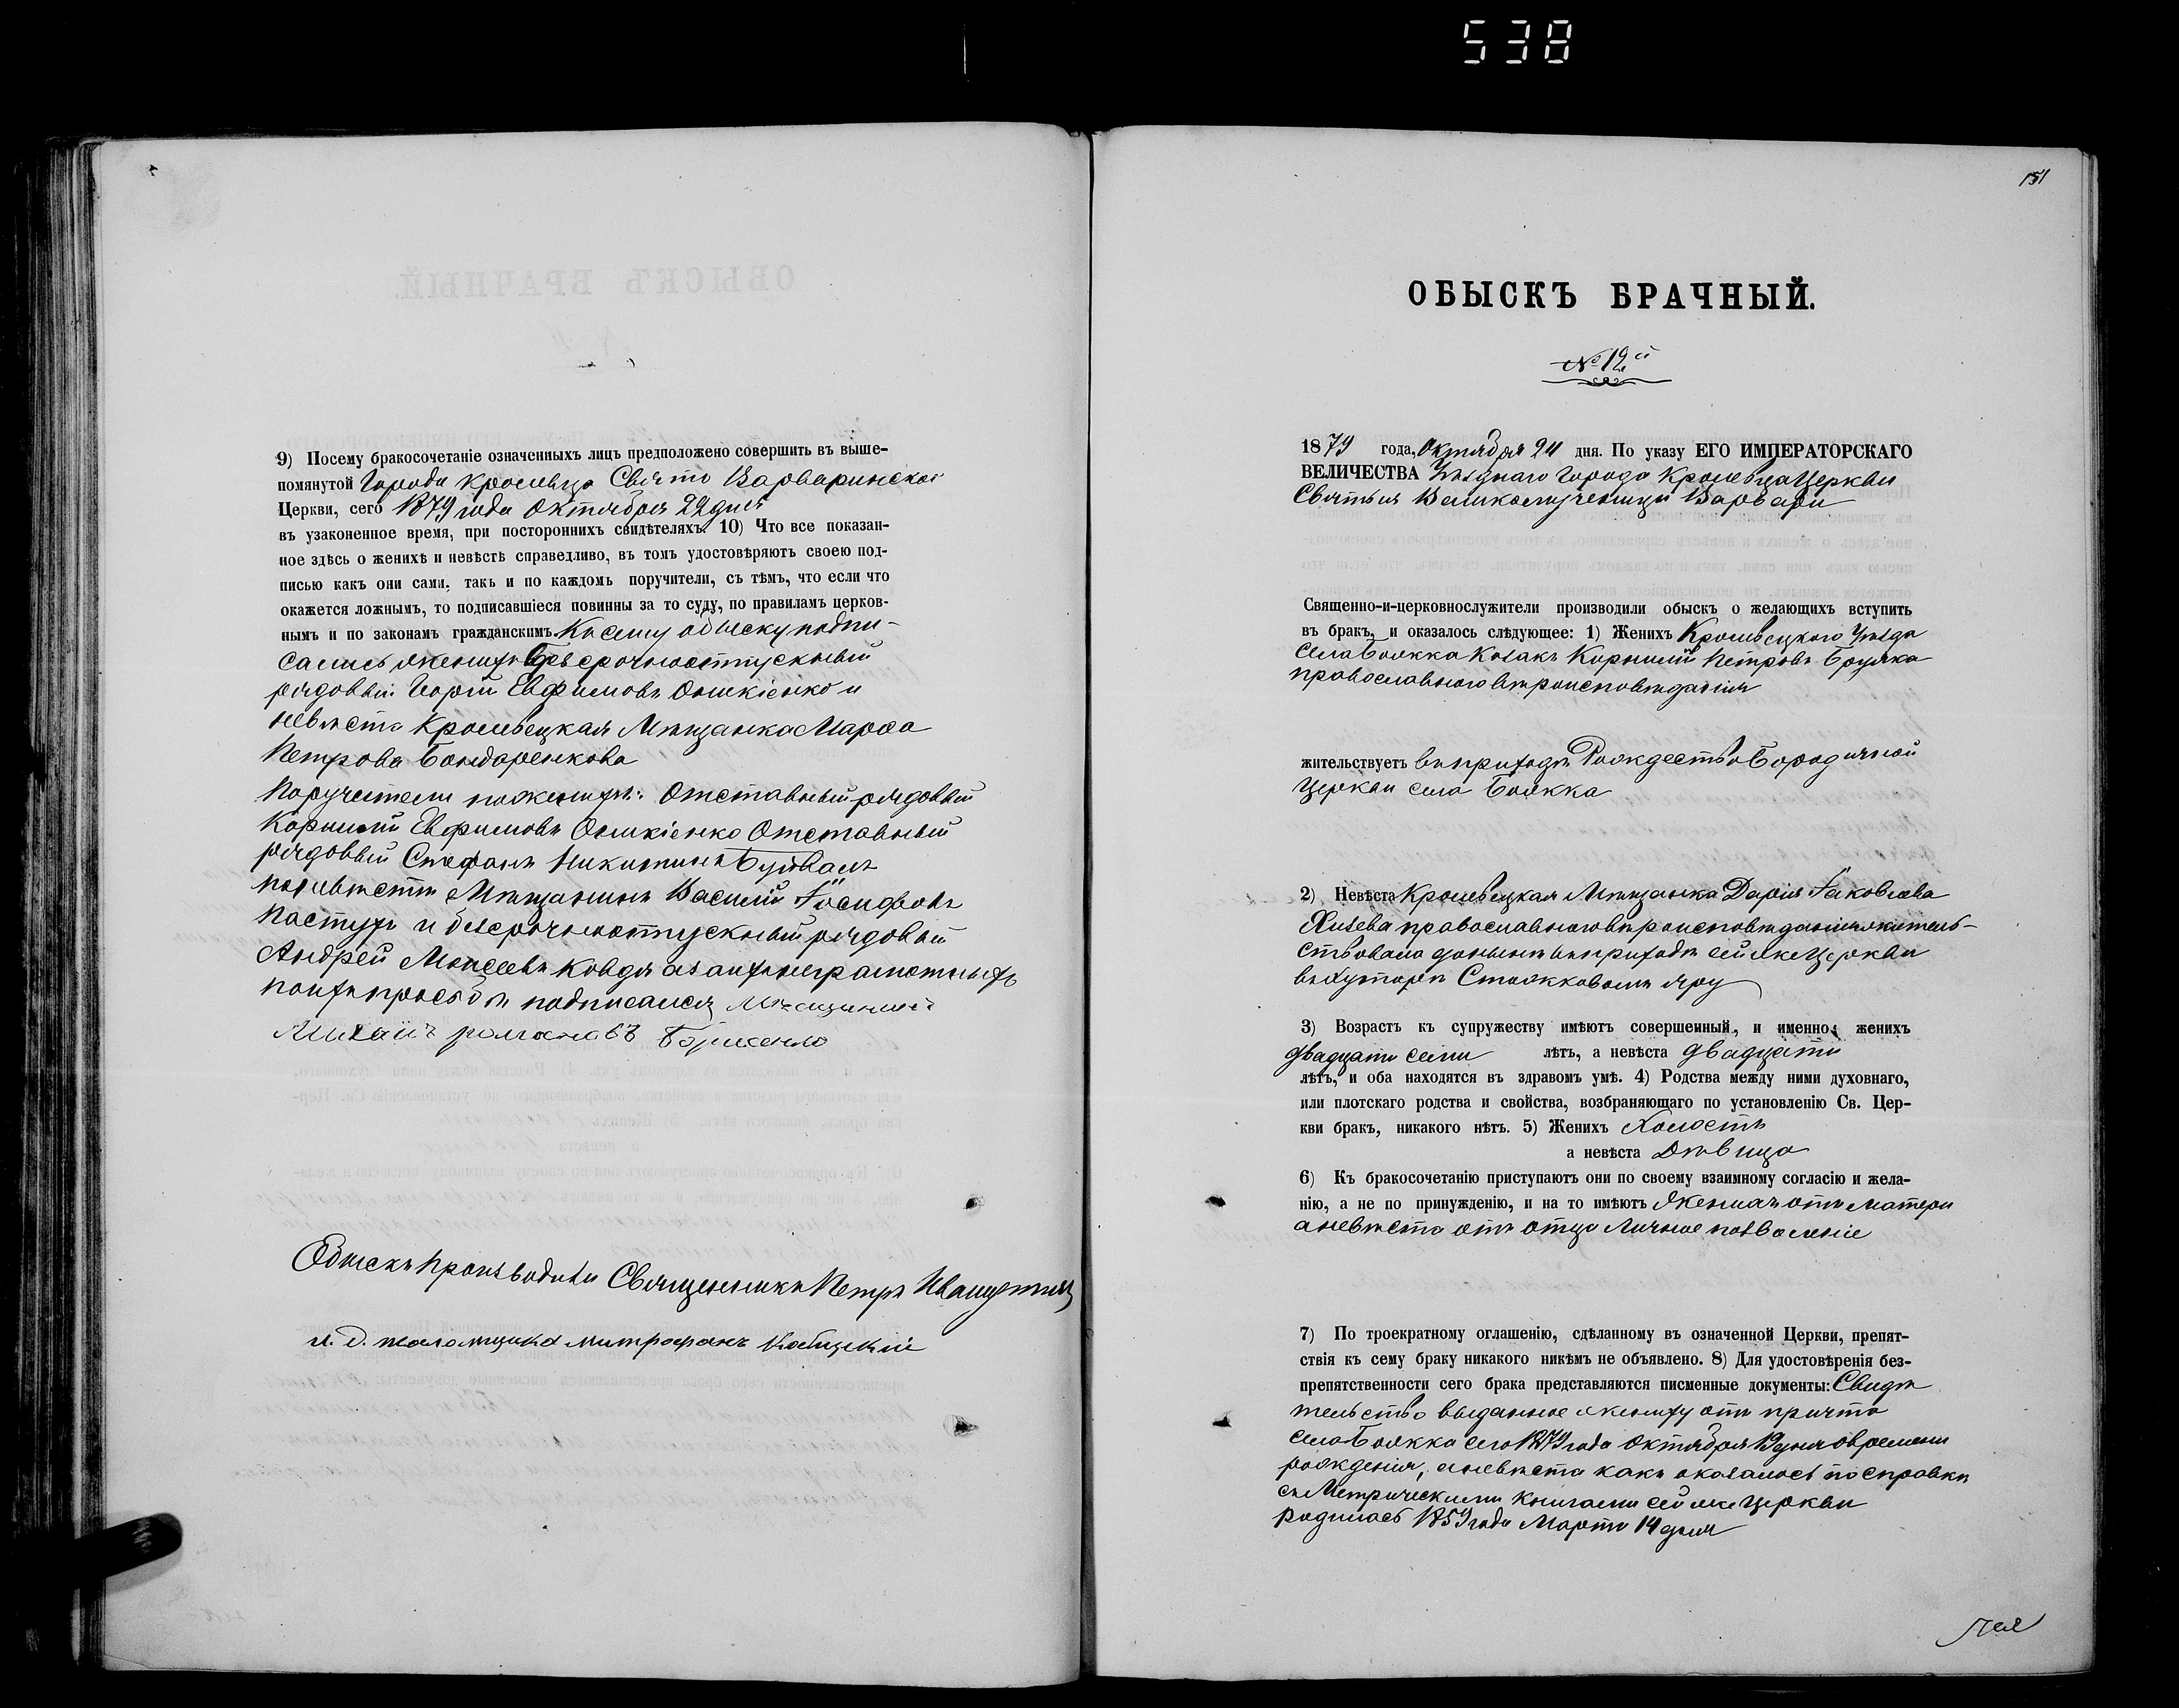 538
9) Посему бракосочетаніе означенныхъ лицъ предположено совершить въ выше-
помянутой Города Кролевца Свято Варваринской
Церкви, сего 1879 года Октября 22 дня
въ узаконенное время, при постороннихъ свидѣтеляхъ. 10) Что все показан-
ное здѣсь о женихѣ и невѣстѣ справедливо, въ томъ удостовѣряютъ своею под-
писью какъ они сами, такъ и по каждомъ поручители, съ тѣмъ, что если что
окажется ложнымъ, то подписавшіеся повинны за то суду, по правиламъ церков-
нымъ и по законамъ гражданскимъ. Къ сему обыску подпи-
сались женихъ безсрочноотпускный
рядовый Георгій Евфимовъ Ошкіенко и
невѣста Кролевецкая Мѣщанка Марѳа
Петрова Бондаренкова
Поручители по женихѣ: Отставный рядовый
Корнилій Евфимовъ Ошкіенко Отставный
рядовый Стефанъ Никитинъ
по невѣстѣ Мѣщанинъ Василій Іосифовъ
Пастухъ и безсрочноотпускный рядовый
Андрей Моисеевъ Ковдя а за ихъ неграмотныхъ
по ихъ просьбѣ подписался Мѣщанинъ
Михаилъ Романовъ
Обыскъ производили Священникъ Петръ
и. д. псаломщика Митрофанъ
151
ОБЫСКЪ БРАЧНЫЙ.
№ 12й
1879 года, Октября 24 дня. По указу ЕГО ИМПЕРАТОРСКАГО
ВЕЛИЧЕСТВА Уѣзднаго Города Кролевца Церкви
Святыя Великомученицы Варвары
Священно-и-церковнослужители производили обыскъ о желающихъ вступить
въ бракъ, и оказалось слѣдующее: 1) Женихъ Кролевецкого Уѣзда
Села Божка Козакъ Корнилій Петровъ Бруяка
православного вѣроисповѣданія
жительствуетъ въ приходѣ Рождество Богородичной
Церкви села Божка
2) Невѣста Кролевецкая Мѣщанка Дарія Іаковлева
Хизева православного вѣроисповѣданія житель-
ствовала донынѣ въ приходѣ сей же Церкви
въ хуторѣ Стожковомъ яру
3) Возрастъ къ супружеству имѣютъ совершенный, и именно: женихъ
двадцати семи лѣтъ, а невѣста двадцати
лѣтъ, и оба находятся въ здравомъ умѣ. 4) Родства между ними духовнаго,
или плотскаго родства и свойства, возбраняющаго по установленію Св. Цер-
кви бракъ, никакого нѣтъ. 5) Женихъ Холостъ
а невѣста Дѣвица
6) Къ бракосочетанію приступаютъ они по своему взаимному согласію и жела-
нію, а не по принужденію, и на то имѣютъ Женихъ отъ матери
а невѣста отъ отца личное позволеніе
7) По троекратному оглашенію, сдѣланному въ означенной Церкви, препят-
ствія къ сему браку никакого никѣмъ не объявлено. 8) Для удостовѣренія без-
препятственности сего брака представляются писменные документы: Свидѣ
тельство выданное жениху отъ причта
села Божка сего 1879 года Октября 19 дня о времени
рожденія, а невѣста какъ оказалось по справкѣ
съ Метрическими книгами сей же Церкви
родилась 1859 года Марта 14 дня